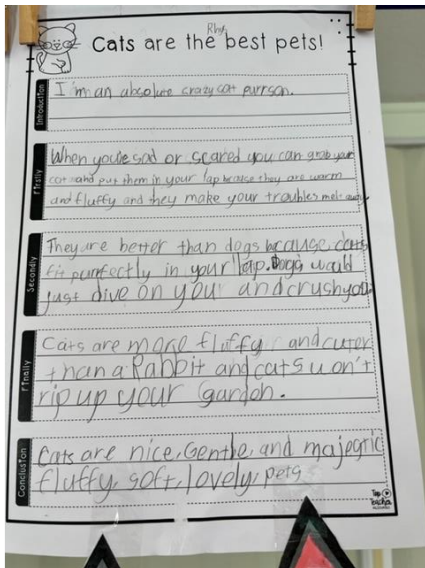 Rhys
Cats are the best pets!
Introduction
I'm an absolute crazy cat purrson.
Firstly
When you're sad or scared you can grab your
cat and put them in your lap because they are warm
and fluffy and they make your troubles melt away.
Secondly
They are better than dogs because cats
fit purrfectly in your lap. Dogs would
just dive on you and crush you.
Finally
Cats are more fluffy and cuter
than a Rabbit and cats won't
rip up your Garden.
Conclusion
Cats are nice, Gentle, and majestic
fluffy, soft, lovely, pets.
Top
Teacher